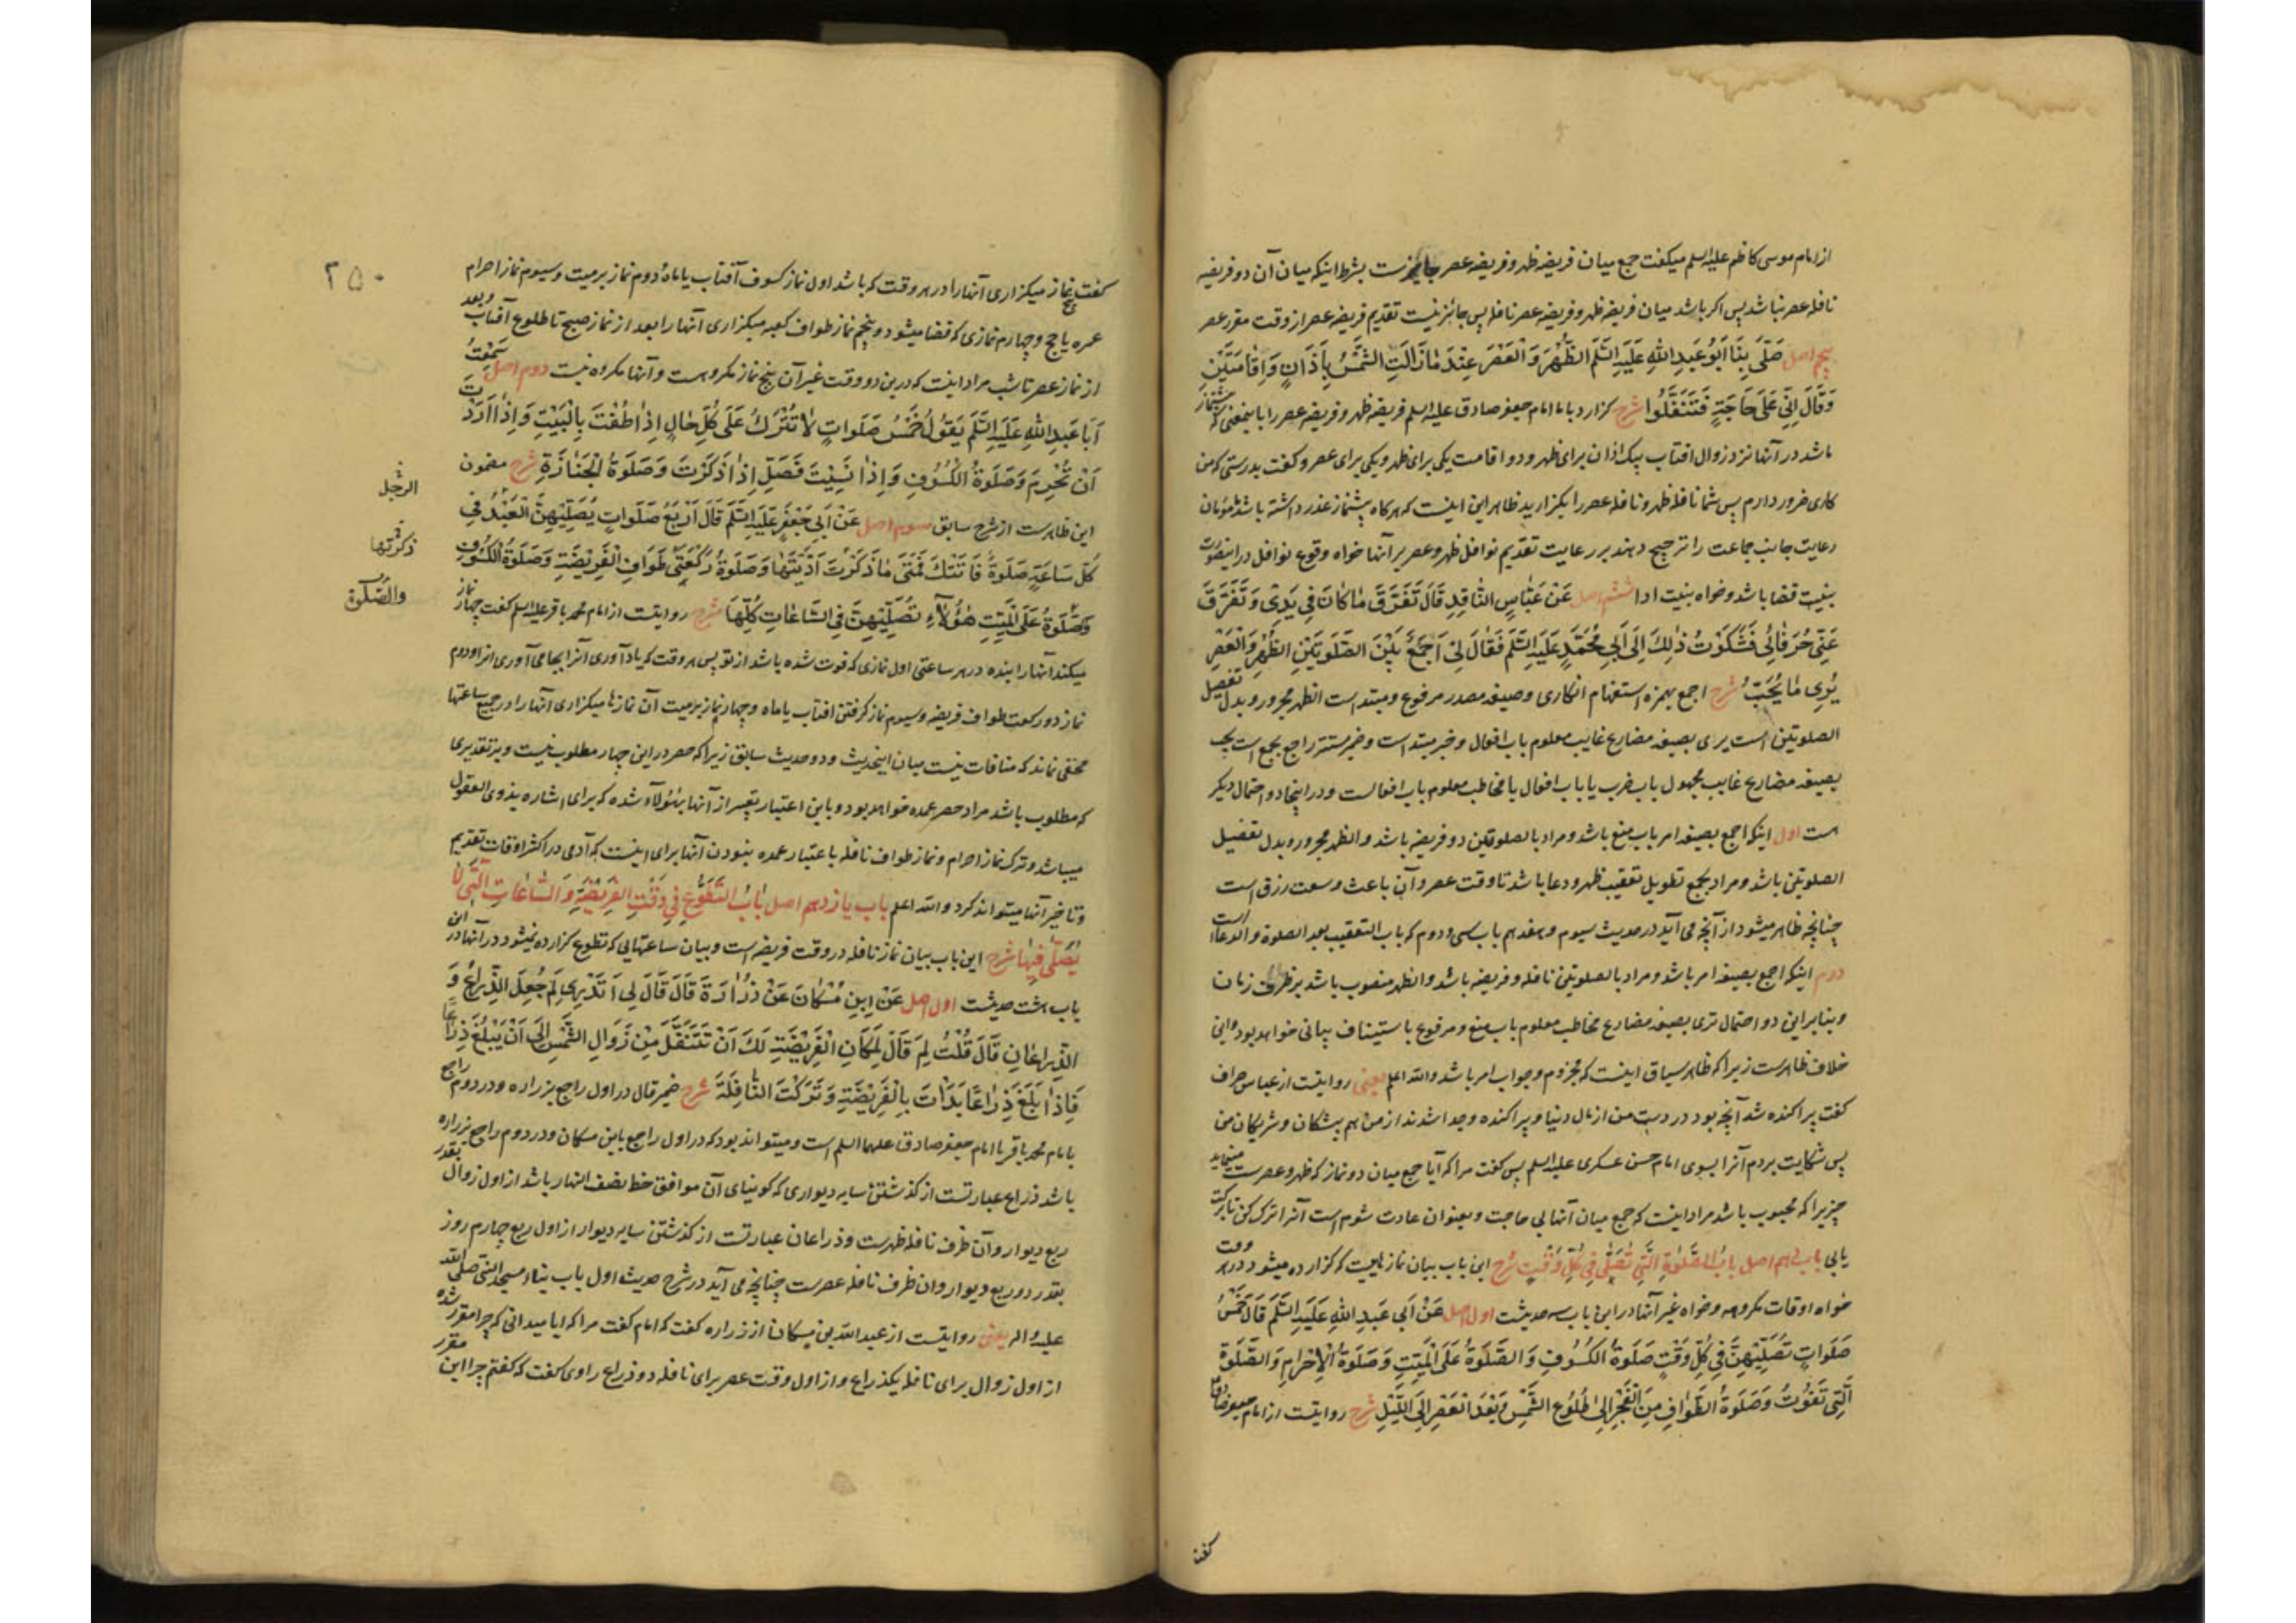 از امام موسی کاظم علیه السلم میکفت جمع میان فریضه ظهر و فریضه عصر جایزست بشرط اینکه میان آن دو فریضه
نافله عصر نباشد پس اکر باشد میان فریضه ظهر و فریضه عصر نافله پس جائز نیست تقدیم فریضه عصر از وقت مقرر عصر
پنجم اصل صَلّٰی بِنَا اَبُو عَبْدِ اللّٰهِ عَلَیْهِ السَّلَم الظُّهْرَ وَ الْعَصْرَ عِنْدَ مٰا زٰالَتِ الشَّمْسُ بِاَذٰانٍ وَ اِقٰامَتَیْنِ
وَ قٰالَ اِنّی عَلٰی حٰاجَةٍ فَتَنَفَّلُوا شرح کزارد باما امام جعفر صادق علیه السلم فریضه ظهر و فریضه عصر را باینمعنی که پیشنماز
باشد در آنها نزد زوال افتاب بیک اذان برای ظهر و دو اقامت یکی برای ظهر و یکی برای عصر و کفت بدرستی که من
کاری ضرور دارم پس شما نافله ظهر و نافله عصر را بکزارید ظاهر این اینست که هرکاه پیشنماز عذر داشته باشد مؤمنان
رعایت جانب جماعت را ترجیح دهند بر رعایت تقدیم نوافل ظهر و عصر بر آنها خواه وقوع نوافل در اینصورت
بنیت قضا باشد و خواه بنیت ادا ششم اصل عَنْ عَبّٰاسٍ النّٰاقِدِ قٰالَ تَفَرَّقَ مٰا کٰانَ فی یَدی وَ تَفَرَّقَ
عَنّی حُرَفٰائی فَشَکَوْتُ ذٰلِکَ اِلٰی اَبی مُحَمَّدٍ عَلَیْهِ السَّلَم فَقٰالَ لی اَجَمْعُ بَیْنَ الصَّلٰوتَیْنِ الظُّهْرِ وَ الْعَصْرِ
یُری مٰا یُحَبُّ شرح اجمع بهمزه استفهام انکاری و صیغه مصدر مرفوع و مبتداست الظهر مجرور و بدل تفصیل
الصلوتین است یری بصیغه مضارع غایب معلوم باب افعال و خبر مبتداست و ضمیر مستتر راجع بجمع است یحب
بصیغه مضارع غایب مجهول باب ضرب یا باب افعال یا مخاطب معلوم باب افعالست و در اینجا دو احتمال دیکر
است اول اینکه اجمع بصیغه امر باب منع باشد و مراد بالصلوتین دو فریضه باشد و الظهر مجرور و بدل تفصیل
الصلوتین باشد و مراد بجمع تطویل تعقیب ظهر و دعا باشد تا وقت عصر و آن باعث وسعت رزق است
چنانچه ظاهر میشود از آنچه می آید در حدیث سیوم و هفدهم باب سی و دوم که باب التعقیب بعد الصلوة و الدعا است
دوم اینکه اجمع بصیغه امر باشد و مراد بالصلوتین نافله و فریضه باشد و الظهر منصوب باشد بر ظرف زمان
و بنابر این دو احتمال تری بصیغه مضارع مخاطب معلوم باب منع و مرفوع باستیناف بیانی خواهد بود و این
خلاف ظاهرست زیرا که ظاهر سیاق اینست که مجزوم و جواب امر باشد والله اعلم یعنی روایتست از عباس صراف
کفت پراکنده شد آنچه بود در دست من از مال دنیا و پراکنده و جدا شدند از من هم پیشکان و شریکان من
پس شکایت بردم آنرا بسوی امام حسن عسکری علیه السلم پس کفت مرا که آیا جمع میان دو نماز که ظهر و عصرست مینماید
چیزیرا که محبوب باشد مراد اینست که جمع میان آنها بی حاجت و بعنوان عادت شوم است آنرا ترک کن تا برکت
یابی باب دهم اصل بٰابُ الصَّلٰوةِ الَّتی تُصَلّٰی فی کُلِّ وَقْتٍ شرح این باب بیان نمازهاییست که کزارده میشود در هر وقت
خواه اوقات مکروهه و خواه غیر آنها در این باب سه حدیثست اول اصل عَنْ اَبی عَبْدِ اللّٰهِ عَلَیْهِ السَّلَم قٰالَ خَمْسُ
صَلَوٰاتٍ تُصَلّیهِنَّ فی کُلِّ وَقْتٍ صَلٰوةُ الْکُسُوفِ وَ الصَّلٰوةُ عَلَی الْمَیِّتِ وَ صَلٰوةُ الْاِحْرٰامِ وَ الصَّلٰوةُ
الَّتی تَفُوتُ وَ صَلٰوةُ الطَّوٰافِ مِنَ الْفَجْرِ اِلٰی طُلُوعِ الشَّمْسِ وَ بَعْدَ الْعَصْرِ اِلَی اللَّیْلِ شرح روایتست از امام جعفر صادق
کفت
۲۵۰
کفت پنج نماز میکزاری آنها را در هر وقت که باشد اول نماز کسوف آفتاب یا ماه دوم نماز بر میت و سیوم نماز احرام
عمره یا حج و چهارم نمازی که قضا میشود و پنجم نماز طواف کعبه میکزاری آنها را بعد از نماز صبح تا طلوع آفتاب و بعد
از نماز عصر تا شب مراد اینست که درین دو وقت غیر آن پنج نماز مکروهست و آنها مکروه نیست دوم اصل سَمِعْتُ
اَبٰا عَبْدِ اللّٰهِ عَلَیْهِ السَّلَم یَقُولُ خَمْسُ صَلَوٰاتٍ لٰا تُتْرَکُ عَلٰی کُلِّ حٰالٍ اِذٰا طُفْتَ بِالْبَیْتِ وَ اِذٰا اَرَدْتَ
اَنْ تُحْرِمَ وَ صَلٰوةُ الْکُسُوفِ وَ اِذٰا نَسیتَ فَصَلِّ اِذٰا ذَکَرْتَ وَ صَلٰوةُ الْجَنٰازَةِ شرح مضمون
این ظاهرست از شرح سابق سوم اصل عَنْ اَبی جَعْفَرٍ عَلَیْهِ السَّلَم قٰالَ اَرْبَعُ صَلَوٰاتٍ یُصَلّیهِنَّ الْعَبْدُ فی
الرجل
کُلِّ سٰاعَةٍ صَلٰوةٌ فٰاتَتْکَ فَمَتٰی مٰا ذَکَرْتَ اَدَّیْتَهٰا وَ صَلٰوةُ رَکْعَتَیْ طَوٰافِ الْفَریضَةِ وَ صَلٰوةُ الْکُسُوفِ
ذکرتها
وَ صَلٰوةٌ عَلَی الْمَیِّتِ هٰؤُلٰاءِ تُصَلّیهِنَّ فِی السّٰاعٰاتِ کُلِّهٰا شرح روایتست از امام محمد باقر علیه السلم کفت چهار نماز
والصلوة
میکند آنها را بنده در هر ساعتی اول نمازی که فوت شده باشد از تو پس هر وقت که یاد آوری آنرا بجا می آوری انرا و دوم
نماز دو رکعت طواف فریضه و سیوم نماز کرفتن افتاب یا ماه و چهارم نماز بر میت آن نمازها میکزاری آنها را در جمیع ساعتها
مخفی نماند که منافات نیست میان اینحدیث و دو حدیث سابق زیرا که حصر در این چهار مطلوب نیست و بر تقدیری
که مطلوب باشد مراد حصر عمده خواهد بود و باین اعتبار تعبیر از آنها بهؤلاء شده که برای اشاره بذوی العقول
میباشد و ترک نماز احرام و نماز طواف نافله باعتبار عمده نبودن آنها برای اینست که آدمی در اکثر اوقات تقدیم
و تاخیر آنها میتواند کرد والله اعلم باب یازدهم اصل بٰابُ التَّطَوُّعِ فی وَقْتِ الْفَریضَةِ وَ السّٰاعٰاتِ الَّتی لٰا
یُصَلّٰی فیهٰا شرح این باب بیان نماز نافله در وقت فریضه است و بیان ساعتهایی که تطوع کزارده نمیشود در آنها در این
باب هشت حدیثست اول اصل عَنِ ابْنِ مُسْکٰانَ عَنْ زُرٰارَةَ قٰالَ قٰالَ لی اَتَدْری لِمَ جُعِلَ الذِّرٰاعُ وَ
الذِّرٰاعٰانِ قٰالَ قُلْتُ لِمَ قٰالَ لِمَکٰانِ الْفَریضَةِ لَکَ اَنْ تَتَنَفَّلَ مِنْ زَوٰالِ الشَّمْسِ اِلٰی اَنْ یَبْلُغَ ذِرٰاعًا
فَاِذٰا بَلَغَ ذِرٰاعًا بَدَأْتَ بِالْفَریضَةِ وَ تَرَکْتَ النّٰافِلَةَ شرح ضمیر قال در اول راجع بزراره و در دوم راجع
بامام محمد باقر یا امام جعفر صادق علیهما السلم است و میتواند بود که در اول راجع بابن مسکان و در دوم راجع بزراره
باشد ذراع عبارتست از کذشتن سایه دیواری که کونیای آن موافق خط نصف النهار باشد از اول زوال بقدر
ربع دیوار و آن ظرف نافله ظهرست و ذراعان عبارتست از کذشتن سایه دیوار از اول ربع چهارم روز
بقدر دو ربع دیوار و ان ظرف نافله عصرست چنانچه می آید در شرح حدیث اول باب بناء مسجد النبی صلی الله
علیه و اله یعنی روایتست از عبدالله بن مسکان از زراره کفت که امام کفت مرا که ایا میدانی که چرا مقرر شده
از اول زوال برای نافله یکذراع و از اول وقت عصر برای نافله دو ذراع راوی کفت که کفتم چرا این مقرر